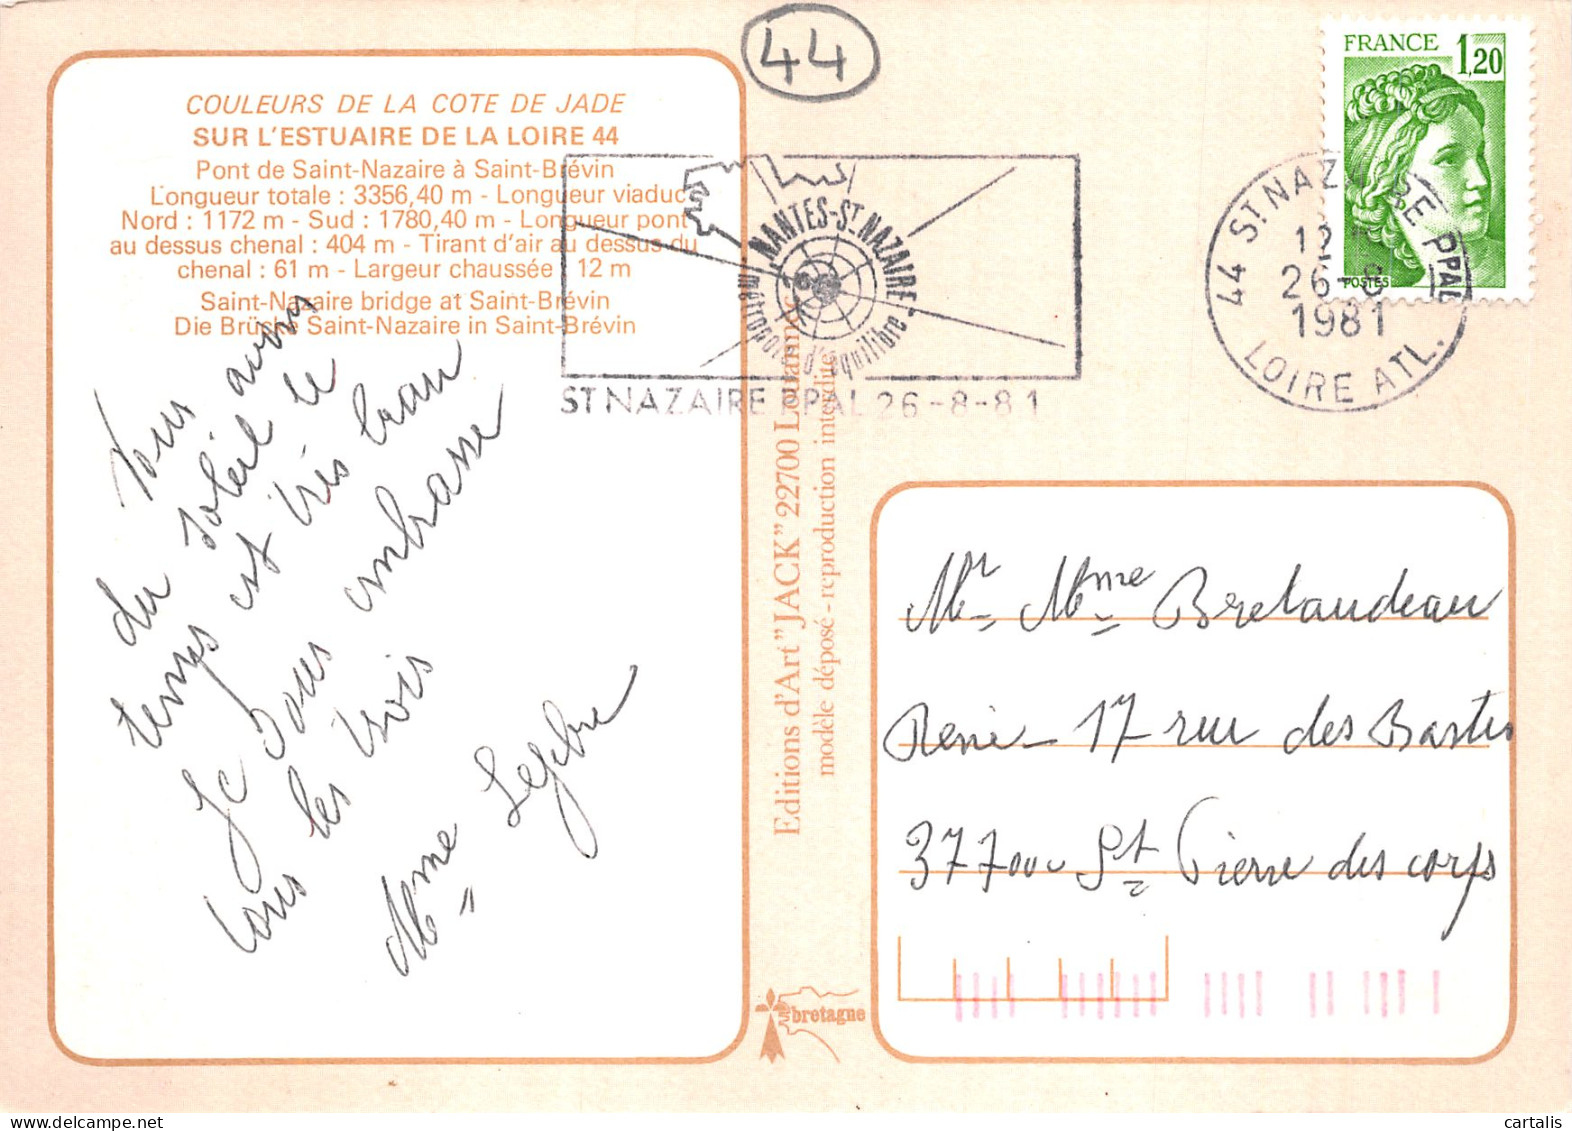 44
COULEURS DE LA COTE DE JADE
SUR L'ESTUAIRE DE LA LOIRE 44
Pont de Saint-Nazaire à Saint-Brévin
Longueur totale : 3356,40 m - Longueur viaduc
Nord : 1172 m - Sud : 1780,40 m - Longueur pont
au dessus chenal : 404 m - Tirant d'air au dessus du
chenal : 61 m - Largeur chaussée : 12 m
Saint-Nazaire bridge at Saint-Brévin
Die Brücke Saint-Nazaire in Saint-Brévin
Nous avons
du soleil le
temps est très beau
Je vous embrasse
tous les trois
Mme Lefebre
Editions d'Art "JACK" 22700 Louannec
modèle déposé - reproduction interdite
bretagne
NANTES-ST NAZAIRE
métropole d'équilibre
ST NAZAIRE PPAL 26-8-81
44 ST NAZAIRE PPAL
12
26-8
1981
LOIRE ATL.
FRANCE 1,20
POSTES
Mr Mme Bretaudeau
René - 17 rue des Bastes
37700 St Pierre des corps
cartalis